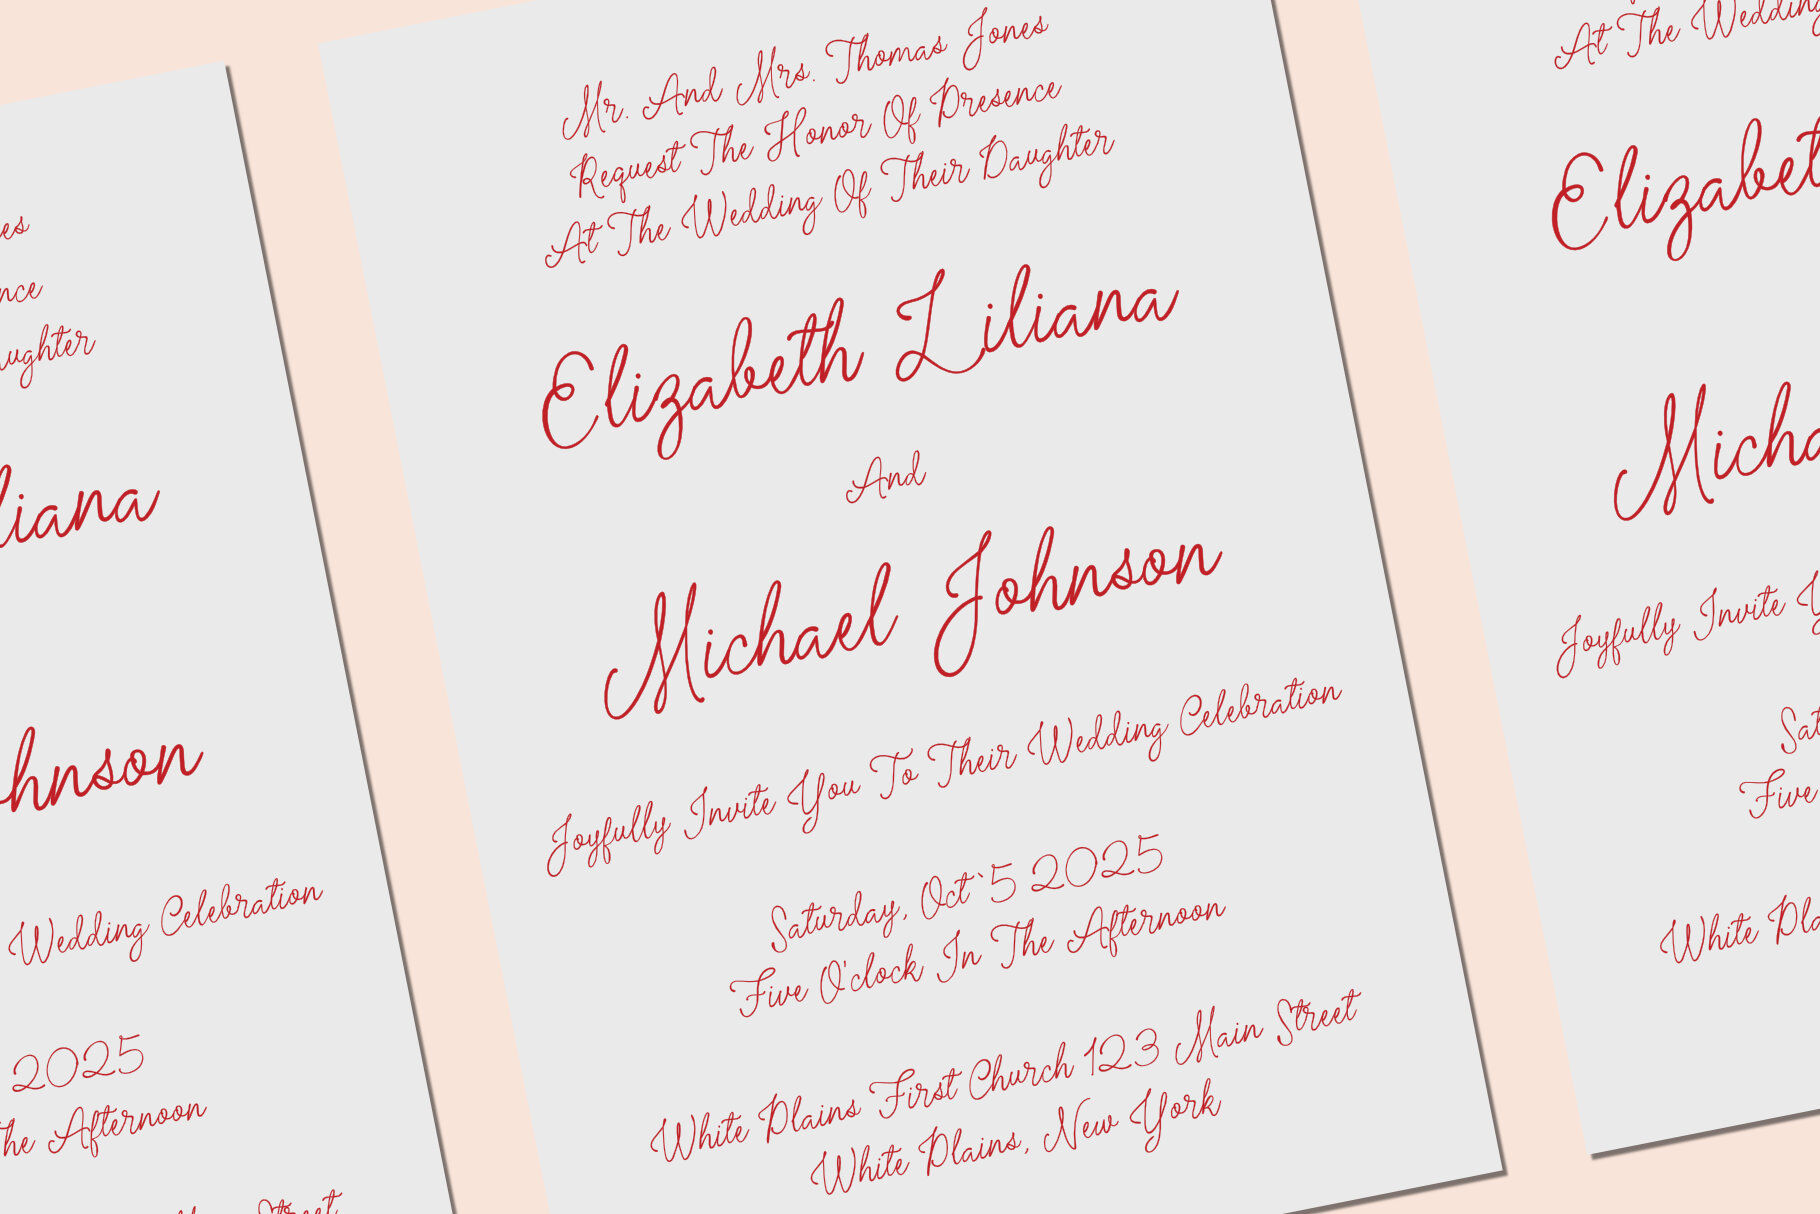 es
nce
ughter
liana
ohnson
Wedding Celebration
2025
he Afternoon
Street
Mr. And Mrs. Thomas Jones
Request The Honor Of Presence
At The Wedding Of Their Daughter
Elizabeth Liliana
And
Michael Johnson
Joyfully Invite You To Their Wedding Celebration
Saturday, Oct`5 2025
Five O'clock In The Afternoon
White Plains First Church 123 Main Street
White Plains, New York
At The Wedding
Elizabet
Micha
Joyfully Invite Y
Sat
Five
White Pla